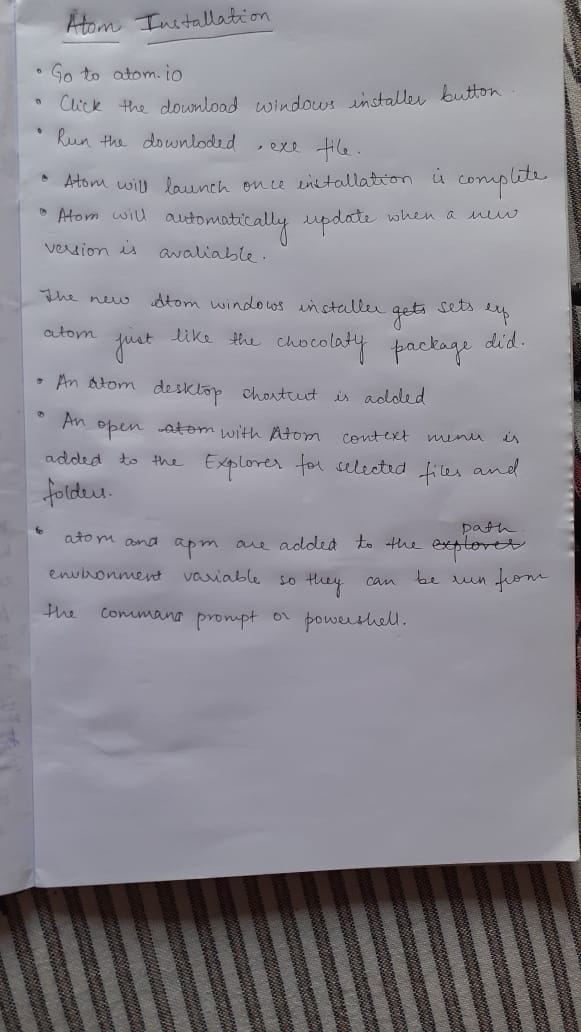 Atom Installation
• Go to atom.io
• Click the download windows installer button.
• Run the downloded .exe file.
• Atom will launch once installation is complete
• Atom will automatically update when a new
version is avaliable.
The new Atom windows installer gets sets up
atom just like the chocolaty package did.
• An Atom desktop shortcut is added
• An open atom with Atom context menu is
added to the Explorer for selected files and
folders.
• atom and apm are added to the explorer path
environment variable so they can be run from
the command prompt or powershell.